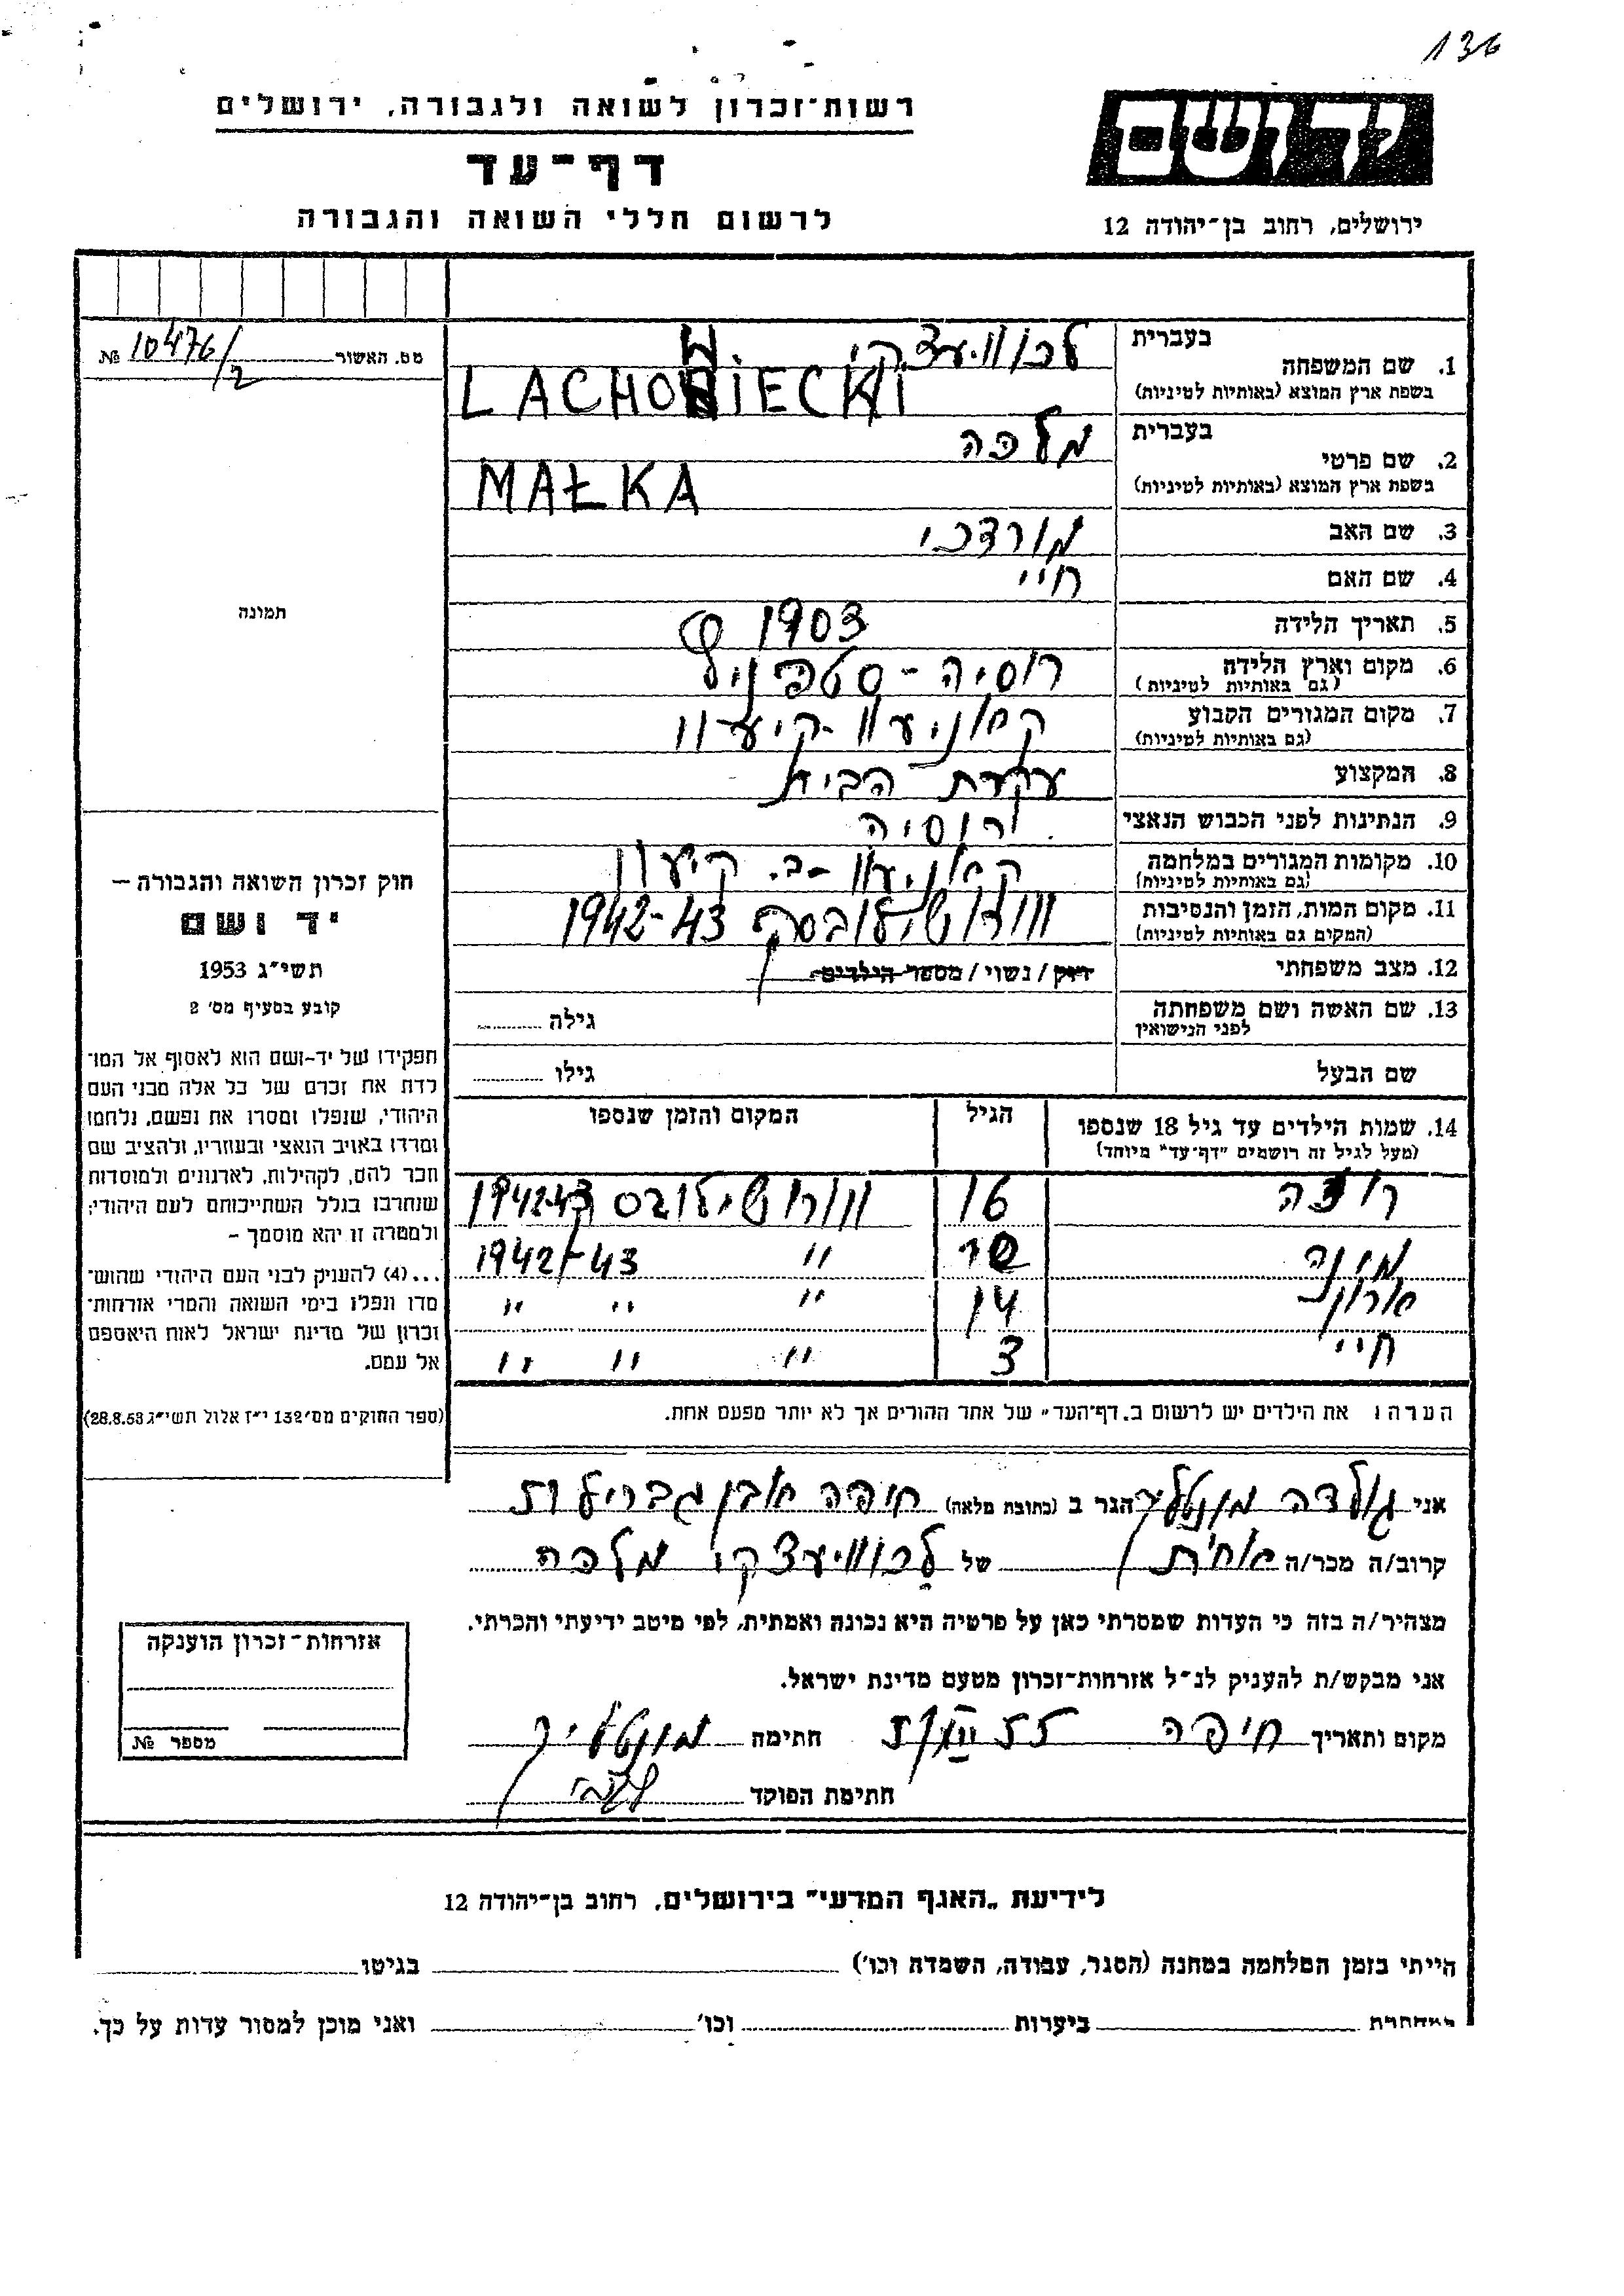 136
יד ושם
ירושלים, רחוב בן־יהודה 12
רשות־זכרון לשואה ולגבורה, ירושלים
דף־עד
לרשום חללי השואה והגבורה
מס. האשור № 10476/2
1. שם המשפחה
בעברית לכוויעצקי
בשפת ארץ המוצא (באותיות לטיניות) LACHOWIECKI
2. שם פרטי
בעברית מלכה
בשפת ארץ המוצא (באותיות לטיניות) MAŁKA
3. שם האב מורדכי
4. שם האם חיי
5. תאריך הלידה 1903
6. מקום וארץ הלידה (גם באותיות לטיניות) רוסיה - סטפניל
7. מקום המגורים הקבוע (גם באותיות לטיניות)
8. המקצוע עקרת הבית
9. הנתינות לפני הכבוש הנאצי רוסיה
10. מקומות המגורים במלחמה (גם באותיות לטיניות)
11. מקום המות, הזמן והנסיבות (המקום גם באותיות לטיניות) 1942-43
12. מצב משפחתי רוק / נשוי / מספר הילדים
13. שם האשה ושם משפחתה לפני הנישואין גילה
שם הבעל גילו
14. שמות הילדים עד גיל 18 שנספו (מעל לגיל זה רושמים "דף־עד" מיוחד) הגיל המקום והזמן שנספו
רוזה 16 1942-43
מינה " 1942-43
אהרון 14 " " "
חיי 3 " " "
הערה: את הילדים יש לרשום ב„דף־העד" של אחד ההורים אך לא יותר מפעם אחת.
תמונה
חוק זכרון השואה והגבורה –
יד ושם
תשי"ג 1953
קובע בסעיף מס' 2
תפקידו של יד-ושם הוא לאסוף אל המו־
לדת את זכרם של כל אלה מבני העם
היהודי, שנפלו ומסרו את נפשם, נלחמו
ומרדו באויב הנאצי ובעוזריו, ולהציב שם
וזכר להם, לקהילות, לארגונים ולמוסדות
שנחרבו בגלל השתייכותם לעם היהודי;
ולמטרה זו יהא מוסמך –
...(4) להעניק לבני העם היהודי שהוש־
מדו ונפלו בימי השואה והמרי אזרחות־
זכרון של מדינת ישראל לאות היאספם
אל עמם.
(ספר החוקים מס' 132 י"ז אלול תשי"ג 28.8.53)
אני גולדה הגר ב (כתובת מלאה) חיפה אבן גבירול
קרוב/ה מכר/ה אחות של לכוויעצקי מלכה
מצהיר/ה בזה כי העדות שמסרתי כאן על פרטיה היא נכונה ואמתית, לפי מיטב ידיעתי והכרתי.
אני מבקש/ת להעניק לנ"ל אזרחות־זכרון מטעם מדינת ישראל.
מקום ותאריך חיפה חתימה
חתימת הפוקד
אזרחות־זכרון הוענקה
מספר №
לידיעת „האגף המדעי" בירושלים, רחוב בן־יהודה 12
הייתי בזמן המלחמה במחנה (הסגר, עבודה, השמדה וכו') בגיטו
במחתרת ביערות וכו' ואני מוכן למסור עדות על כך.